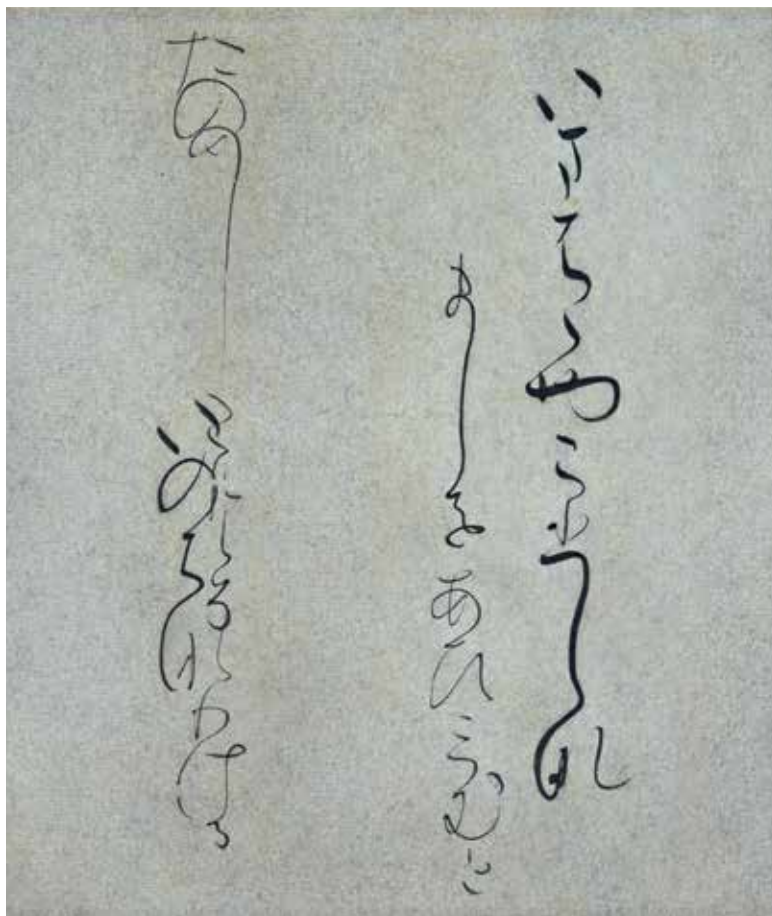 いまはゝやこひしな
ましをあひみむと
たのめしことそ
いのちなりける